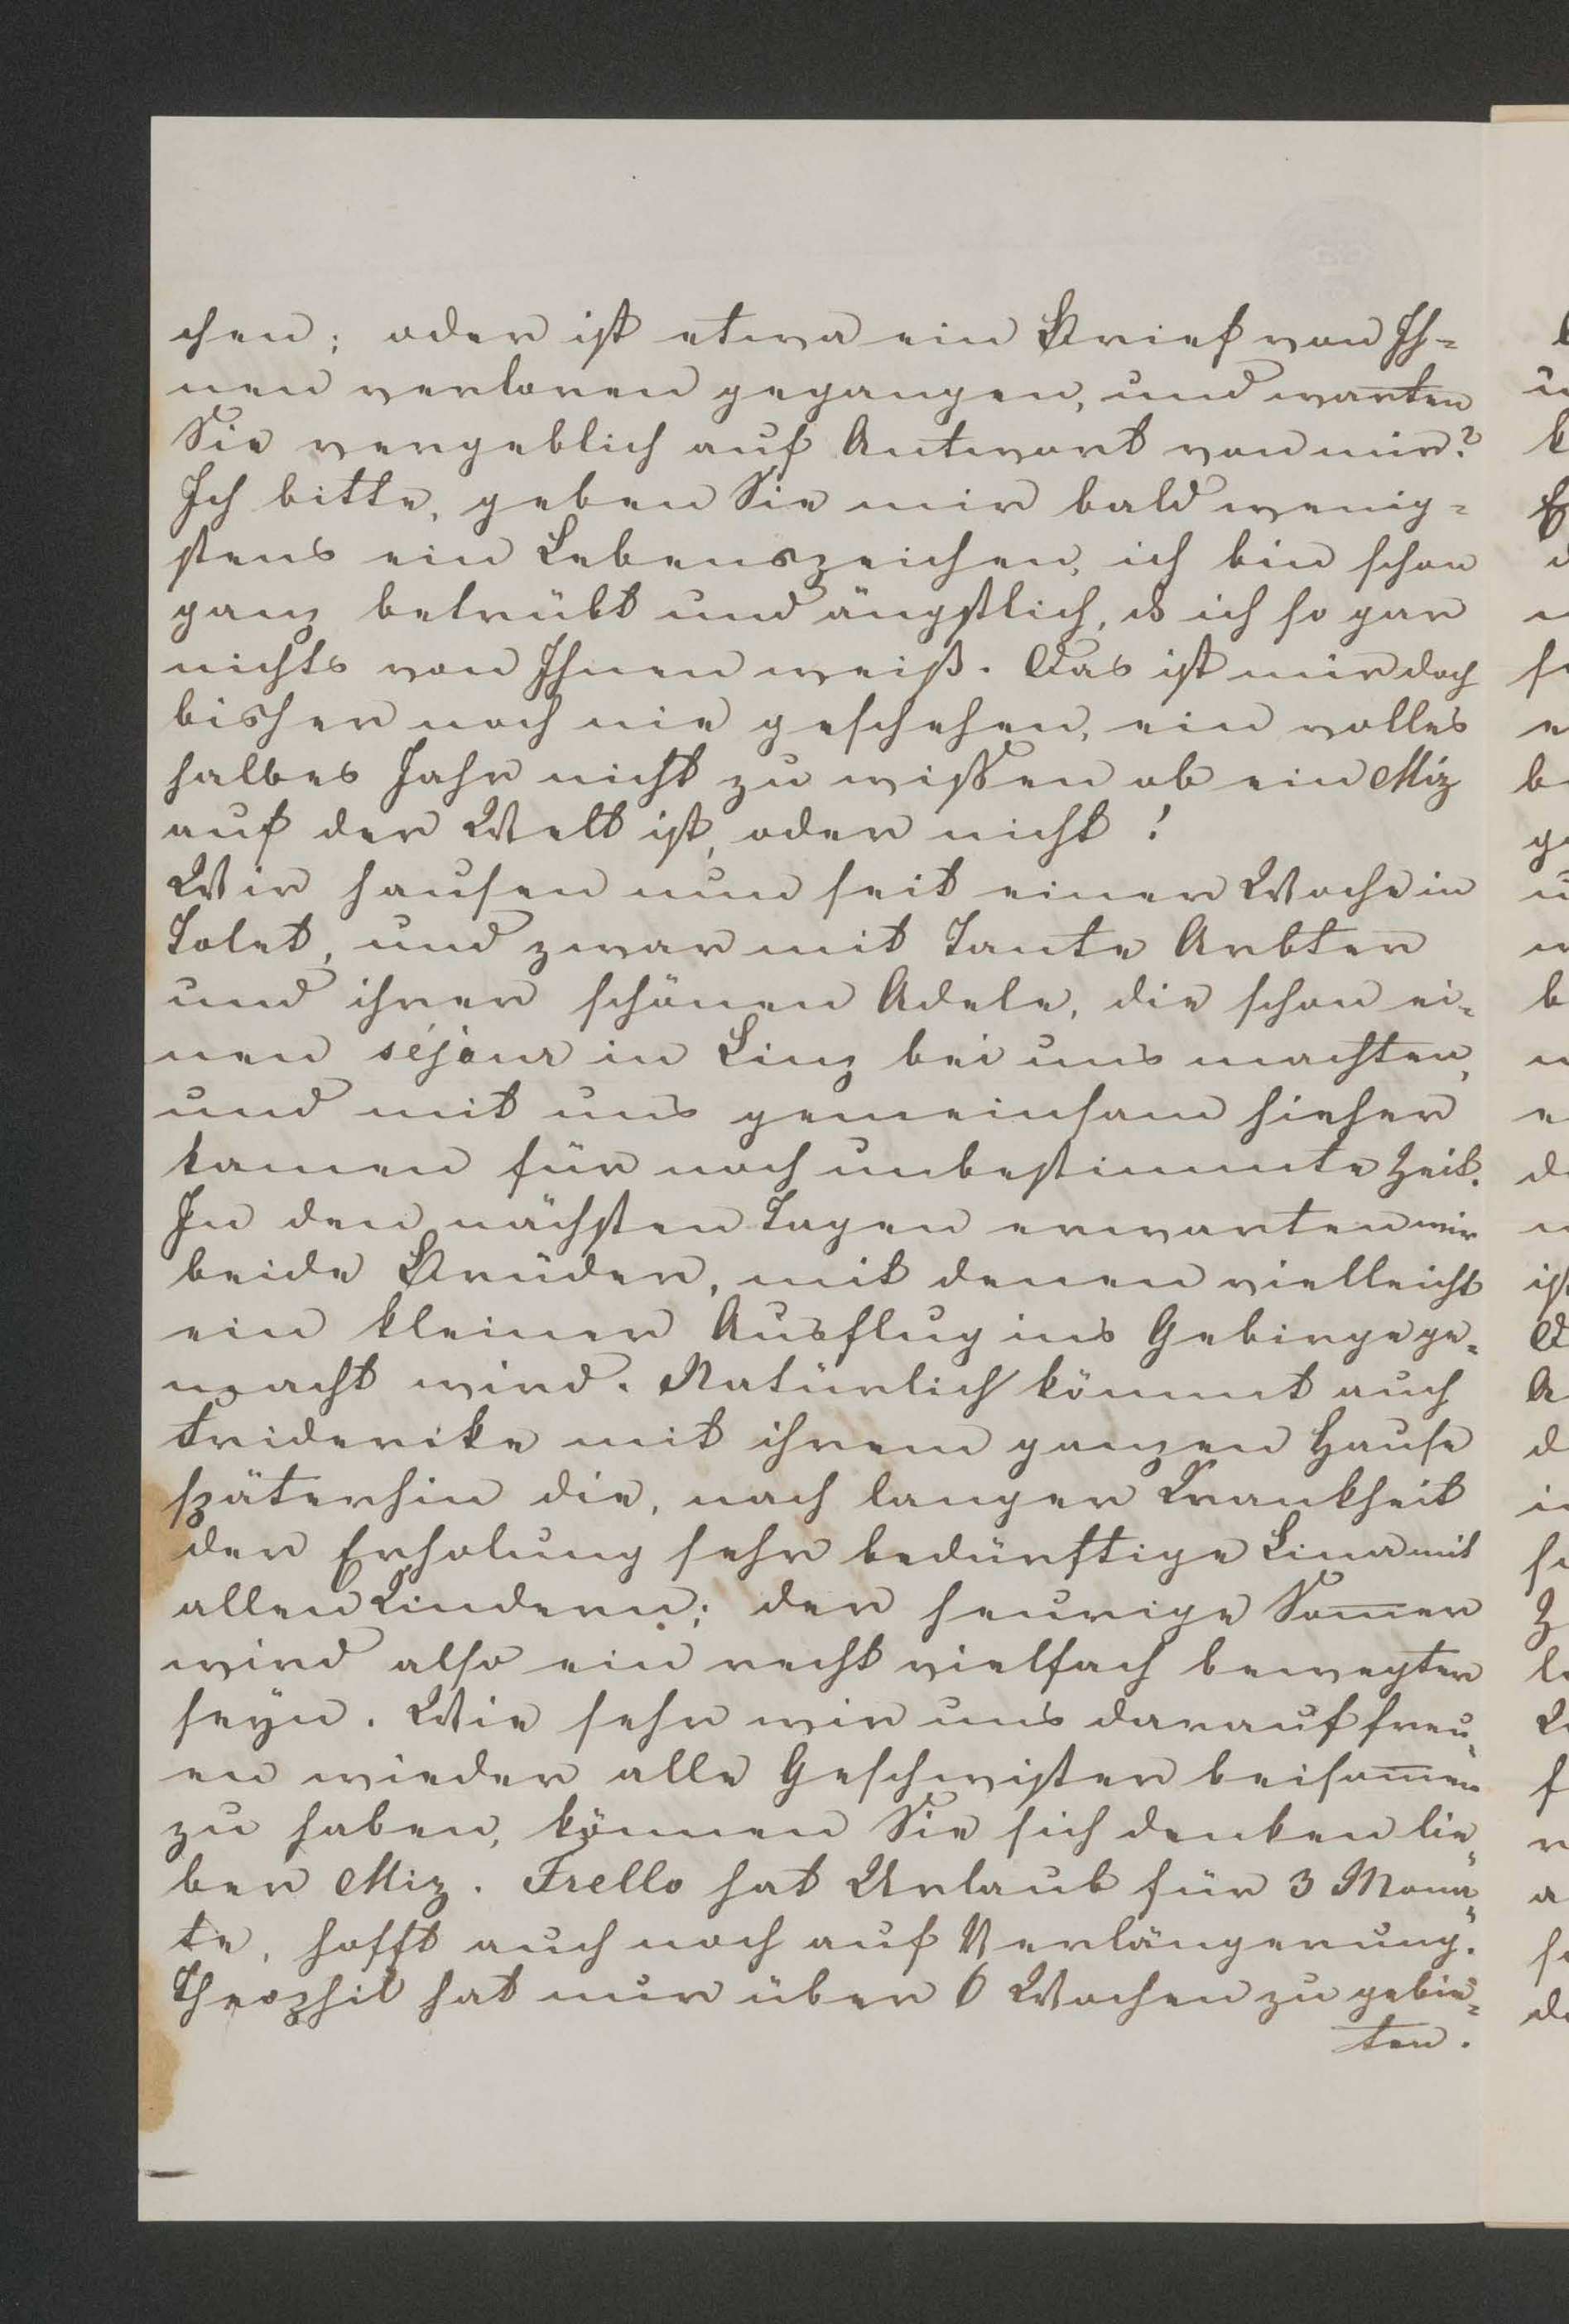 chen; oder ist etwa ein Brief von Ih=
nen verloren gegangen, und warten
Sie vergeblich auf Antwort von mir?
Ich bitte, geben Sie mir bald wenig=
stens ein Lebenszeichen, ich bin schon
ganz betrübt und ängstlich, ds ich so gar
nichts von Ihnen weiß. Das ist mir doch
bisher noch nie geschehen, ein volles
halbes Jahr nicht zu wissen ob ein Miz
auf der Welt ist, oder nicht!
Wir hausen nun seit einer Woche in
Tolet, und zwar mit Tante Arbter
und ihrer schönen Adele, die schon ei=
nen séjour in Linz bei uns machten,
und mit uns gemeinsam hieher
kamen für noch unbestimmte Zeit.
In den nächsten Tagen erwarten wir
beide Brüder, mit denen vielleicht
ein kleiner Ausflug ins Gebirge ge=
macht wird. Natürlich kömmt auch
Friderike mit ihrem ganzen Hause
späterhin die, nach langer Krankheit
der Erholung sehr bedürftige Lina mit
allen Kindern; der heurige Som̅er
wird also ein recht vielfach bewegter
seyn. Wie sehr wir uns darauf freu=
en wieder alle Geschwister beisam̅en
zu haben, können Sie sich denken lie=
ber Miz. Frello hat Urlaub für 3 Mona=
te, hofft auch noch auf Verlängerung.
Theophil hat nur über 6 Wochen zu gebie=
ten.